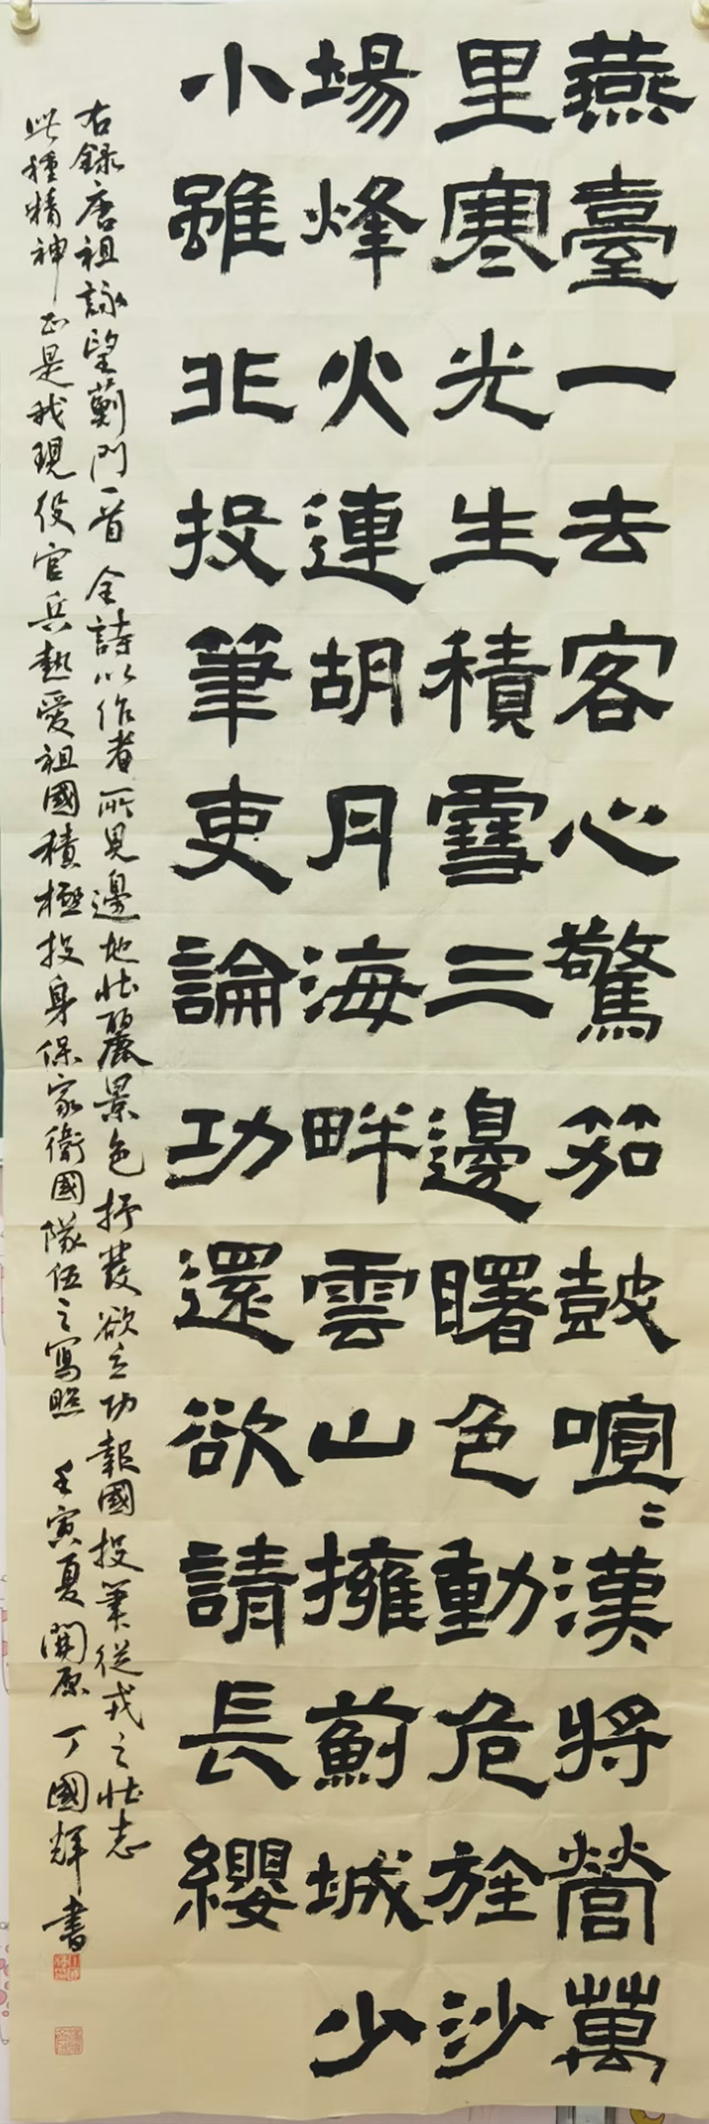 燕臺一去客心驚笳鼓喧〻漢將營萬
里寒光生積雪三邊曙色動危旌沙
場烽火連胡月海畔雲山擁薊城少
小雖非投筆吏論功還欲請長纓
右錄唐祖詠望薊門一首 全詩以作者所見邊地壯麗景色抒發欲立功報國投筆從戎之壯志
此種精神正是我現役官兵熱愛祖國積極投身保家衛國隊伍之寫照 壬寅夏開原丁國輝書